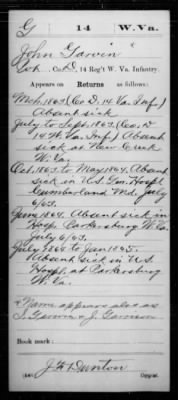 G 14 W. Va.
John Garvin
Pvt. Co. D, 14 Reg't W. Va. Infantry.
Appears on Returns as
Mch. 1863 (Co D. 14 Va. Inf.)
Absent sick
July to Sept. 1863. (Co. D
14 W. Va. Inf.) Absent
sick at New Creek
W. Va.
Oct. 1863 to May 1864. Absent
sick in U.S. Gen. Hosp'l
Cumberland Md. July
6/63.
June 1864. Absent sick in
Hosp. Parkersburg W. Va.
July 6/63.
July 1864 to Jan 1865.
Absent sick in U.S.
Hosp'l at Parkersburg
W. Va.
Name appears also as
J. Garrison
Book mark:
Dunton
Copyist.